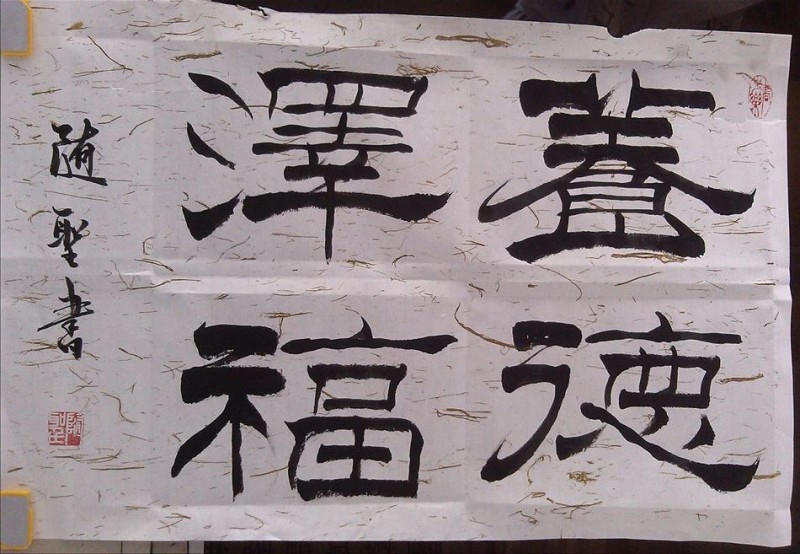 養德
澤福
随聖書